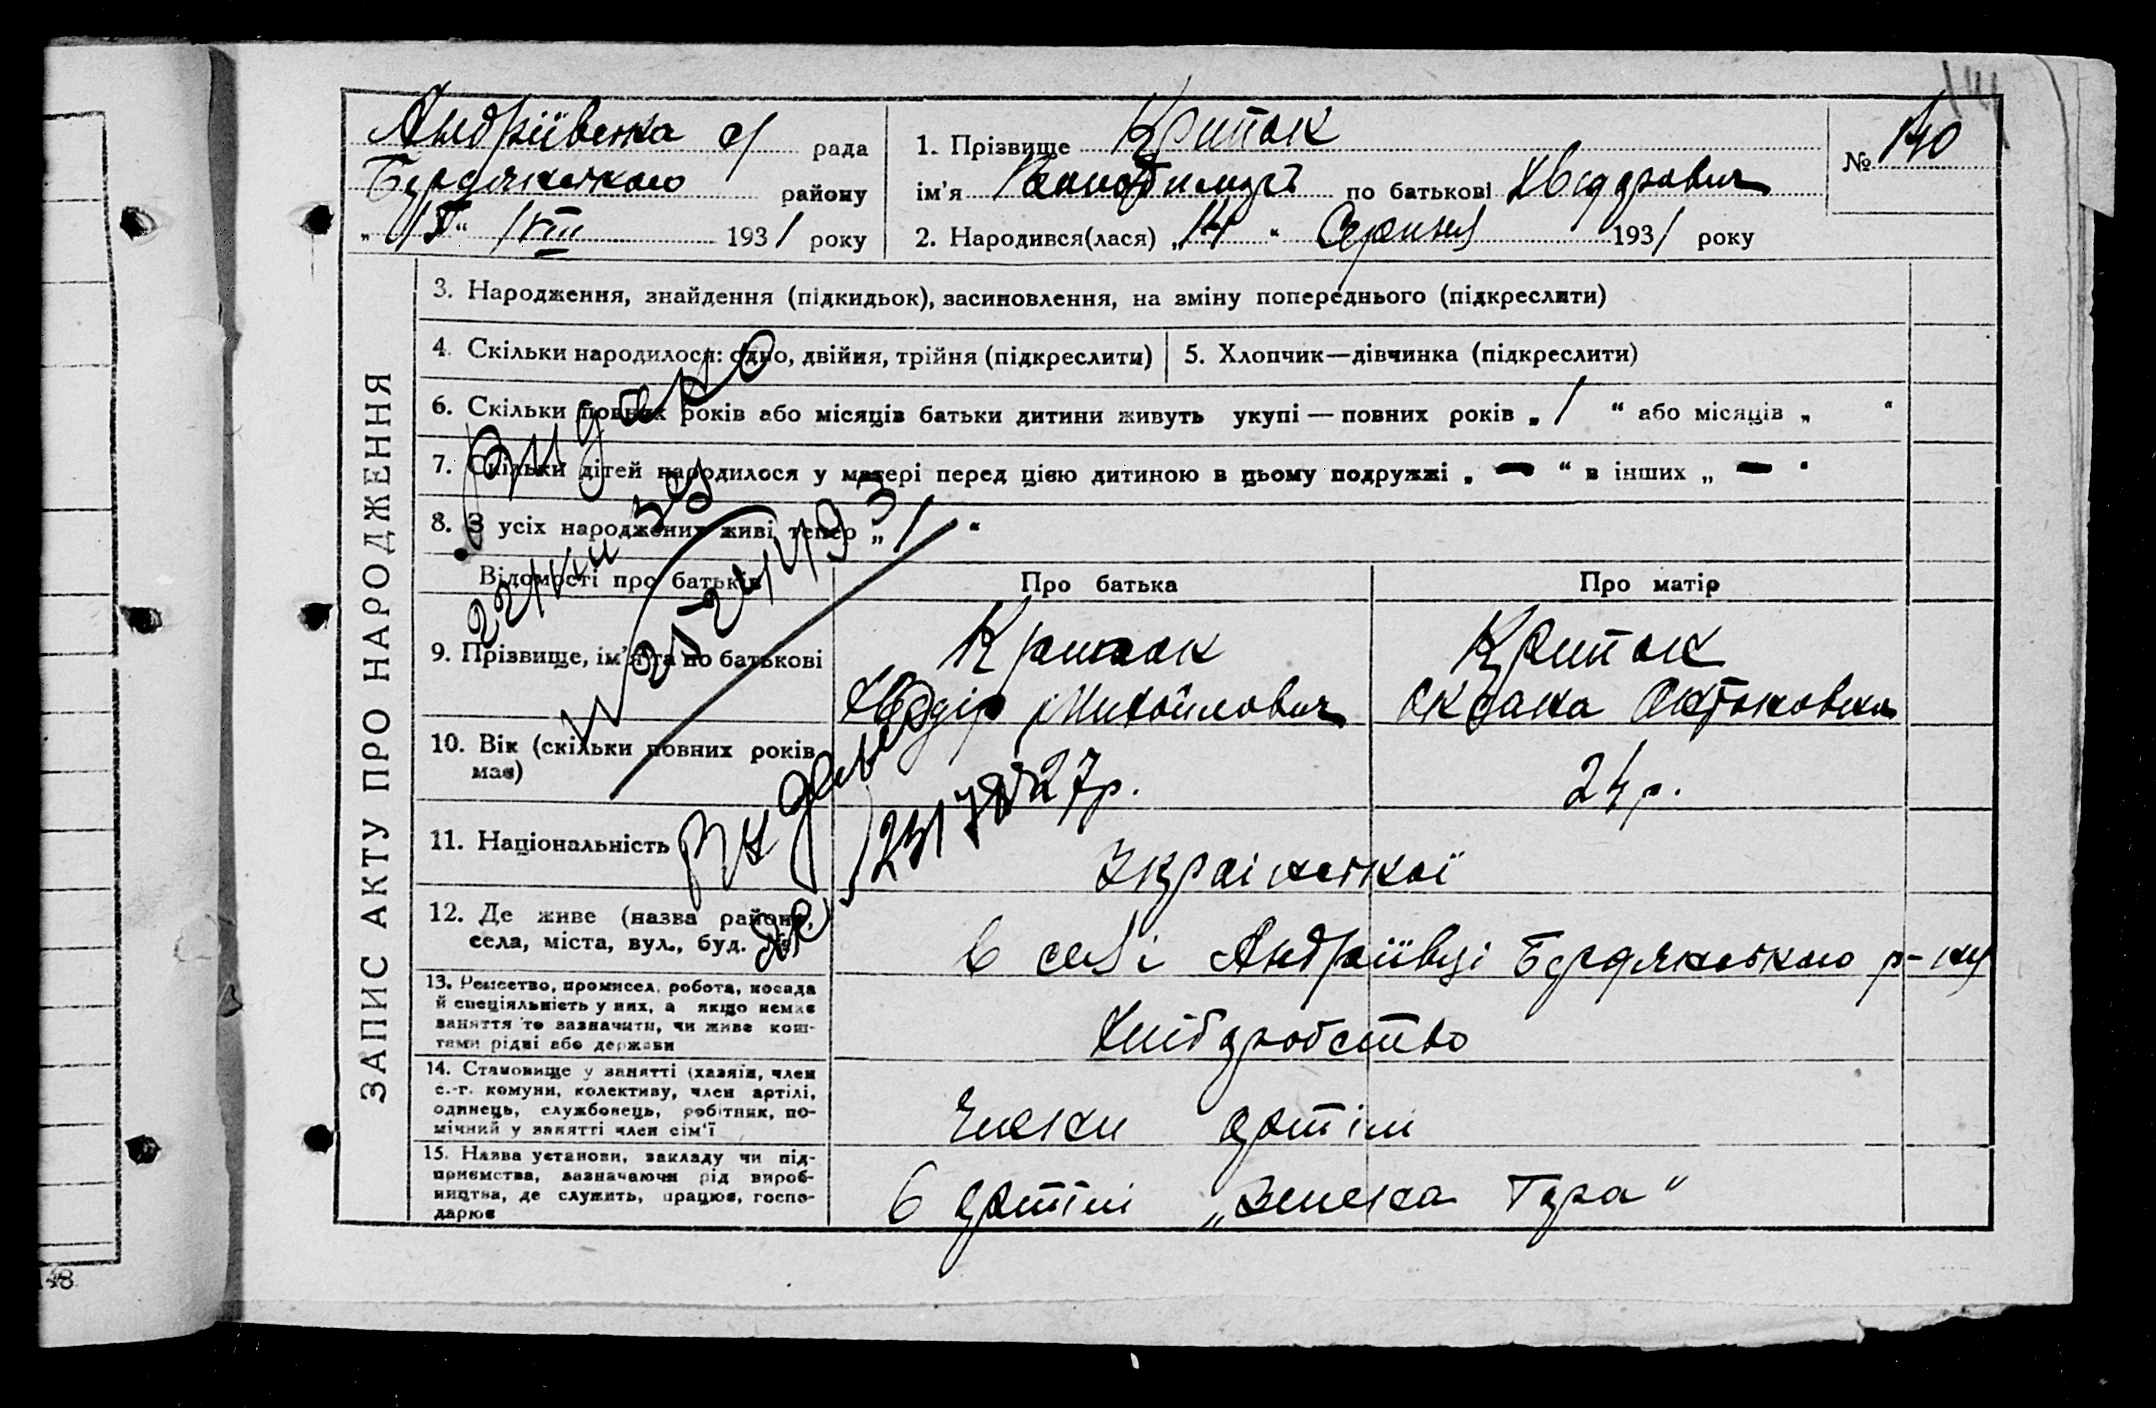 141
Андріївська с/ рада
Бердянського району
"15" VIII 1931 року
1. Прізвище Крипак
ім'я Володимир по батькові Хведорович
2. Народився(лася) "14" Серпня 1931 року
№ 140
ЗАПИС АКТУ ПРО НАРОДЖЕННЯ
3. Народження, знайдення (підкидьок), засиновлення, на зміну попереднього (підкреслити)
4. Скільки народилося: одно, двійня, трійня (підкреслити)
5. Хлопчик—дівчинка (підкреслити)
6. Скільки повних років або місяців батьки дитини живуть укупі — повних років „ 1 “ або місяців „ “
7. Скільки дітей народилося у матері перед цією дитиною в цьому подружжі „ — “ в інших „ — “
8. З усіх народжених живі тепер „ 1 “
Видано
Відомості про батьків
Про батька
Про матір
9. Прізвище, ім'я та по батькові
Крипак
Хведір Михайлович
Крипак
Оксана Антоновна
10. Вік (скільки повних років має)
27 р.
24 р.
11. Національність
Української
12. Де живе (назва району,
села, міста, вул., буд. №)
в селі Андріївці Бердянського р-ну
13. Ремество, промисел, робота, посада
й спеціяльність у них, а якщо немає
заняття то зазначити, чи живе кош-
тами рідні або держави
Хліборобство
14. Становище у занятті (хазяїн, член
с.-г. комуни, колективу, член артілі,
одинець, службовець, робітник, по-
мічний у занятті член сім'ї
Члени артіли
15. Назва установи, закладу чи під-
приємства, зазначаючи рід вироб-
ництва, де служить, працює, госпо-
дарює
в артілі
48